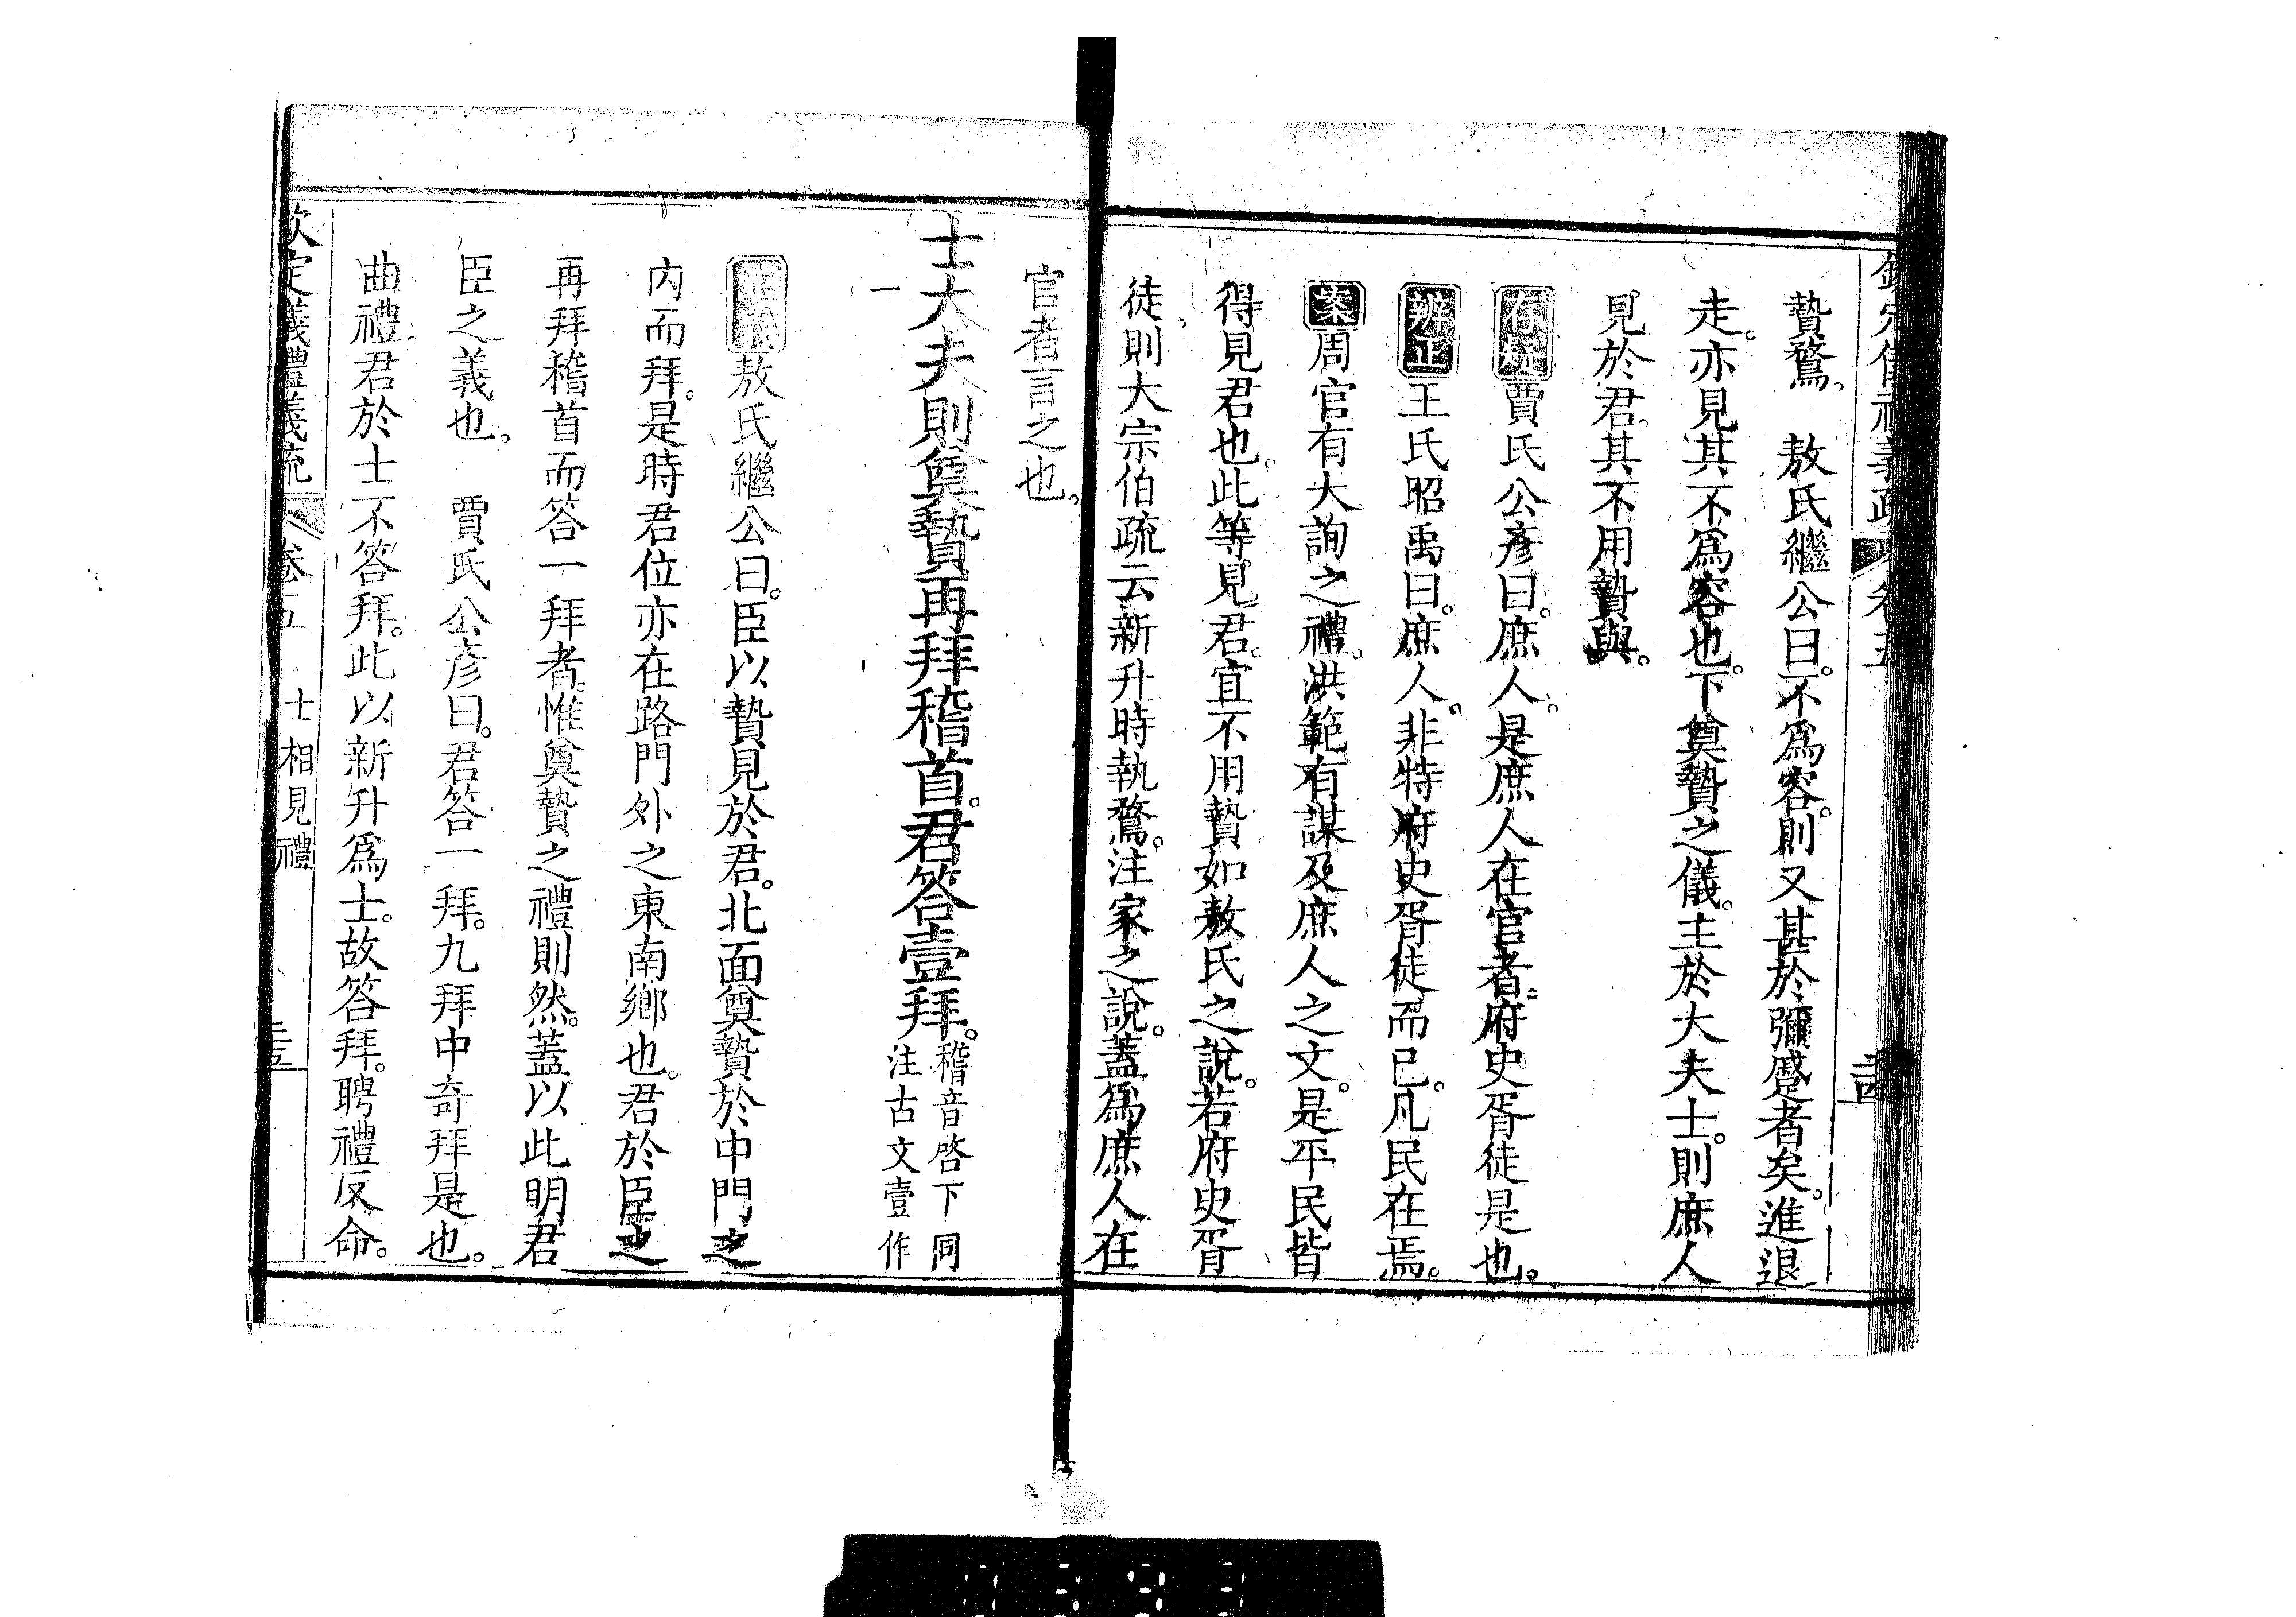 贄鶩。　敖氏繼公曰。不爲容。則又甚於彌蹙者矣。進退
走。亦見其不爲容也。下奠贄之儀。主於大夫士。則庶人
見於君。其不用贄與。
存疑賈氏公彥曰。庶人。是庶人在官者。府史胥徒是也。
辨正王氏昭禹曰。庶人。非特府史胥徒而已。凡民在焉。
案周官有大詢之禮。洪範有謀及庶人之文。是平民皆
得見君也。此等見君。宜不用贄如敖氏之說。若府史胥
徒、則大宗伯疏云新升時執鶩。注家之說。蓋爲庶人在
官者言之也。
士大夫則奠贄再拜稽首。君答壹拜。稽音啓下同
注古文壹作
一
正義敖氏繼公曰。臣以贄見於君。北面奠贄於中門之
內而拜。是時君位亦在路門外之東南鄉也。君於臣之
再拜稽首而答一拜者。惟奠贄之禮則然。蓋以此明君
臣之義也。　賈氏公彥曰。君答一拜。九拜中奇拜是也。
曲禮。君於士不答拜。此以新升爲士。故答拜。聘禮反命。
欽定儀禮義疏　卷五　士相見禮